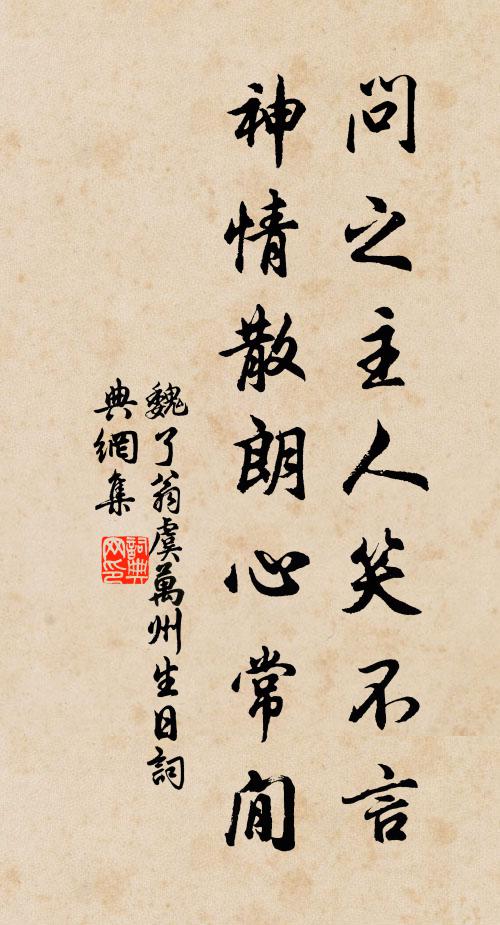 問之主人笑不言
神情散朗心常閒
魏了翁虞萬州生日詞
典網集
詞典網印